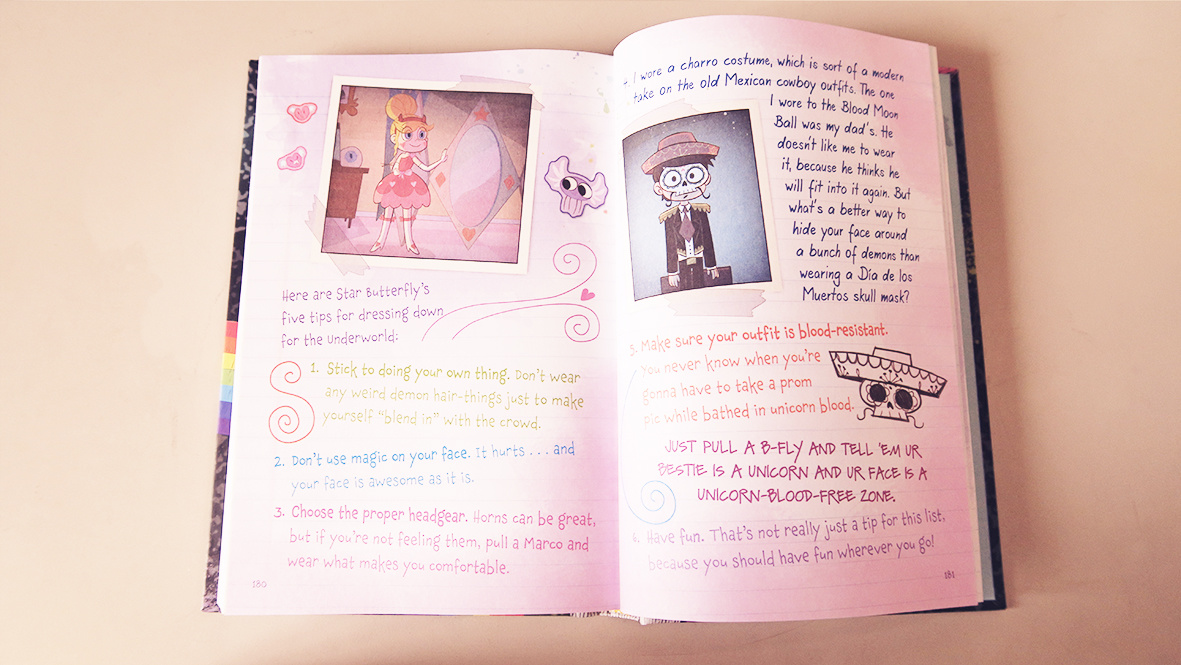 Here are Star Butterfly's
five tips for dressing down
for the Underworld:
1. Stick to doing your own thing. Don't wear
any weird demon hair-things just to make
yourself "blend in" with the crowd.
2. Don't use magic on your face. It hurts . . . and
your face is awesome as it is.
3. Choose the proper headgear. Horns can be great,
but if you're not feeling them, pull a Marco and
wear what makes you comfortable.
180
I wore a charro costume, which is sort of a modern
take on the old Mexican cowboy outfits. The one
I wore to the Blood Moon
Ball was my dad's. He
doesn't like me to wear
it, because he thinks he
will fit into it again. But
what's a better way to
hide your face around
a bunch of demons than
wearing a Día de los
Muertos skull mask?
5. Make sure your outfit is blood-resistant.
You never know when you're
gonna have to take a prom
pic while bathed in unicorn blood.
JUST PULL A B-FLY AND TELL 'EM UR
BESTIE IS A UNICORN AND UR FACE IS A
UNICORN-BLOOD-FREE ZONE.
Have fun. That's not really just a tip for this list,
because you should have fun wherever you go!
181